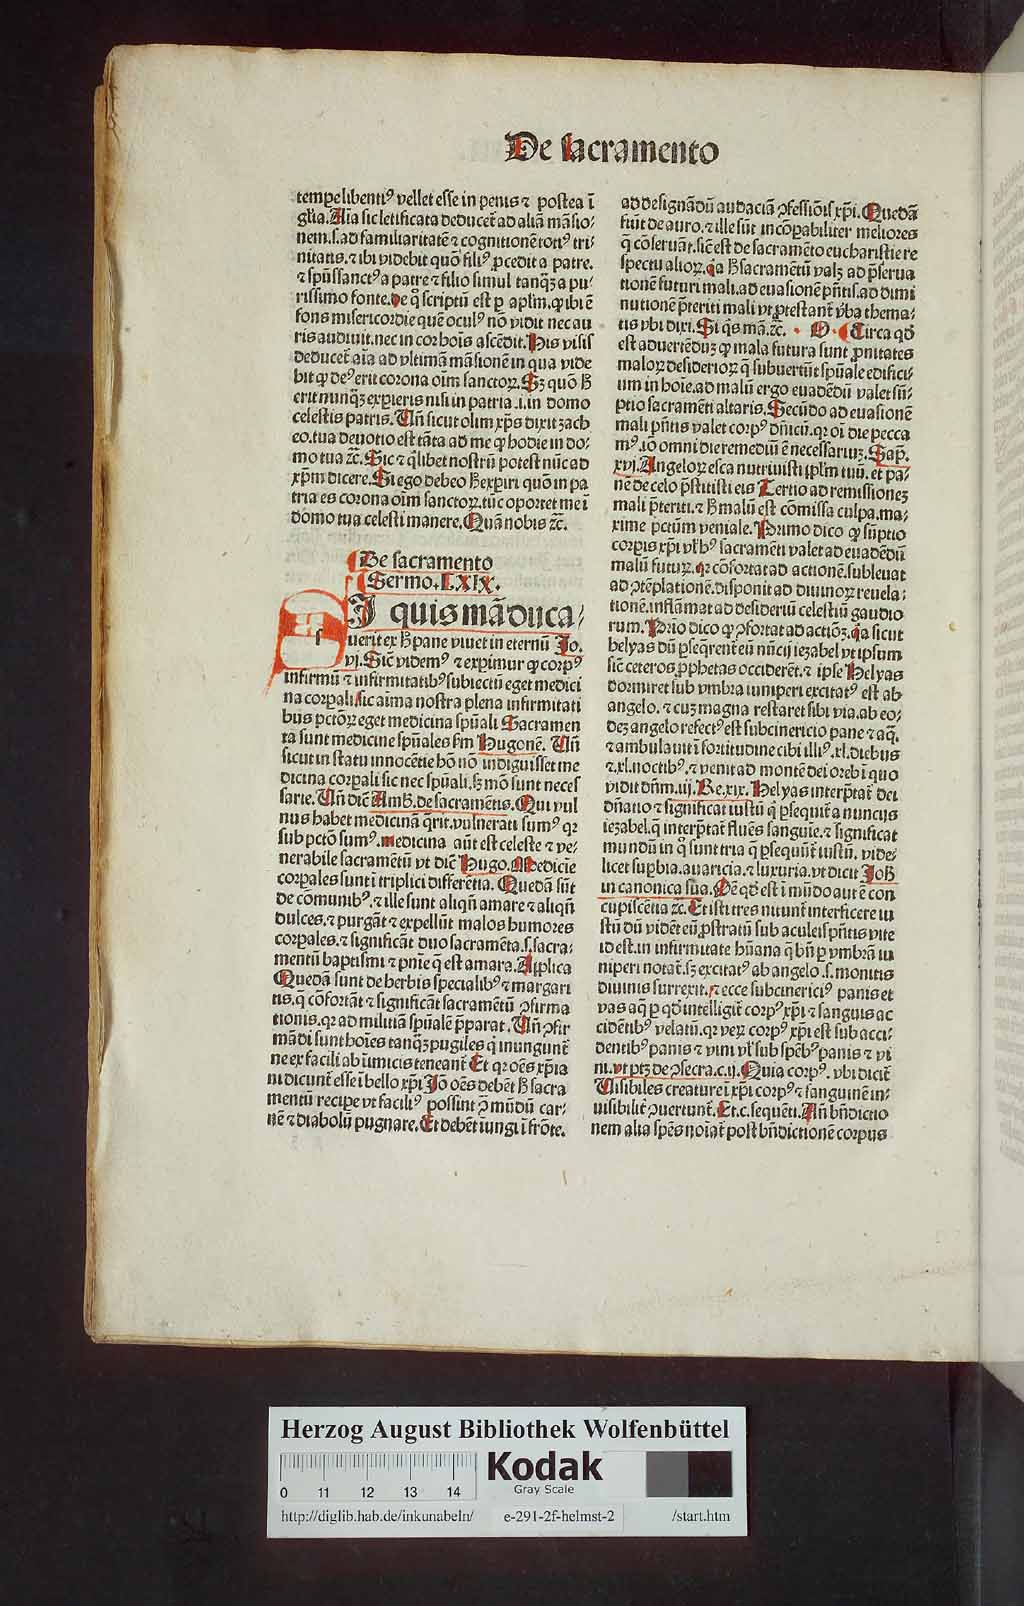 De sacramento
tempelibentiꝰ vellet esse in penis ⁊ postea ī
gl̄ia. Aīa sic letificata deducet᷑ ad aliā māsio-
nem .s. ad familiaritatē ⁊ cognitionē totiꝰ tri-
nitatis. ⁊ ibi videbit quō filiꝰ ꝓcedit a patre.
⁊ spūssanctꝰ a patre ⁊ filio simul tanqȝ a pu-
rissimo fonte. de q̊ scriptū est ꝑ aplm̄. ꝙ ibi ē
fons misericordie quē oculꝰ nō vidit nec au
ris audiuit. nec in cor hoīs ascēdit. His visis
deducet᷑ aīa ad vltimā māsionē in qua vide
bit ꝙ deꝰ erit corona oīm sanctoꝝ. Sȝ quō h̄
erit nunqȝ exꝑieris nisi in patria .i. in domo
celestis patris. Vn̄ sicut olim xp̄s dixit zach
eo. tua deuotio est tāta ad me ꝙ hodie in do-
mo tua ⁊c̄. Sic ⁊ q̇libet nostrū potest nūc ad
xp̄m dicere. Si ego debeo h̄ exꝑiri quō in pa
tria es corona oīm sanctoꝝ. tūc oportet me ī
domo tua celesti manere. Quā nobis ⁊c̄.
De sacramento
Sermo. LXIX.
SI quis māduca-
uerit ex h̄ pane viuet in eternū Jo.
vj. Sic̄ videmꝰ ⁊ exꝑimur ꝙ corpꝰ
infirmū ⁊ infirmitatibꝰ subiectū eget medici
na corꝑali sic aīma nostra plena infirmitati
bus pctōꝝ eget medicina spūali Sacramen
ta sunt medicine spūales sm̄ Hugonē. Vn̄
sicut in statu innocētie hō nō indiguisset me
dicina corꝑali sic nec spūali. sȝ mō sunt neces
sarie. Vn̄ dic̄ Amb̄. de sacramētis. Qui vul
nus habet medicinā q̄rit. vulnerati sumꝰ qꝛ
sub pctō sumꝰ. medicina aūt est celeste ⁊ ve-
nerabile sacramētū vt dic̄ Hugo. Medicie
corꝑales sunt ī triplici differētia. Quedā sūt
de cōmunibꝰ. ⁊ ille sunt aliqn̄ amare ⁊ aliqn̄
dulces. ⁊ purgāt ⁊ expellūt malos humores
corꝑales. ⁊ significāt duo sacramēta .s. sacra-
mentū baptismi ⁊ pnīe q̄ est amara. Applica
Quedā sunt de herbis specialibꝰ ⁊ margari
tis. q̄ cōfortāt ⁊ significāt sacramētū ↄfirma
tionis. qꝛ ad militiā spūalē p̄parat. Vn̄ ↄfir
mādi sunt hoīes tanqȝ pugiles q̇ inungunt᷑
ne ex facili ab inimicis teneant᷑ Et qꝛ oēs xp̄ia
ni dicunt᷑ esse ī bello xp̄i Jō oēs debēt h̄ sacra
mentū recipe vt faciliꝰ possint ↄ̄ mūdū car-
nē ⁊ diabolū pugnare. Et debēt īungi ī frōte.
ad designādū audaciā ↄfessiōīs xp̄i. Quedā
fiūt de auro. ⁊ ille sūt incōpabiliter meliores
q̄ cōseruāt. sic̄ est de sacramēto eucharistie re
spectu alioꝝ. q̇a h̄ sacramētū valȝ ad p̄serua
tionē futuri mali. ad euasionē pn̄tis. ad dimi
nutionē p̄teriti mali vt ꝓtestant᷑ v̄ba thema-
tis vbi dixi. Si q̇s mā. ⁊c̄. Circa qd̄
est aduertēdūȝ ꝙ mala futura sunt ꝓnitates
maloꝝ desiderioꝝ q̄ subuertūt spūale edifici-
um in hoīe. ad malū ergo euadēdū valet sū-
ptio sacramēti altaris. Secūdo ad euasionē
mali pn̄tis valet corpꝰ dn̄icū. qꝛ oī die pecca
mꝰ. iō omni die remediū ē necessariuȝ. Sap̄.
xvj. Angeloꝝ esca nutriuisti ipl̄m tuū. et pa-
nē de celo p̄stitisti eis Tertio ad remissioneȝ
mali p̄teriti. ⁊ h̄ malū est cōmissa culpa. ma-
xime pctūm veniale. Primo dico ꝙ sūptio
corꝑis xp̄i vl̄ hꝰ sacramēti valet ad euadēdū
malū futuꝝ. qꝛ cōfortat ad actionē. subleuat
ad ↄ̄tēplationē. disponit ad diuinoꝝ reuela-
tionē. inflāmat ad desideriū celestiū gaudio
rum. Prīo dico ꝙ ↄfortat ad actiōȝ. q̇a sicut
helyas dū ꝑseqrent᷑ eū nūcij iezabel vt ipsum
sic̄ ceteros ꝓphetas occiderēt. ⁊ ipse Helyas
dormiret sub vmbra iuniperi excitatꝰ est ab
angelo. ⁊ cuȝ magna restaret sibi via. ab eo-
deȝ angelo refectꝰ est subcinericio pane ⁊ aq̄.
⁊ ambulauit ī fortitudine cibi illiꝰ. xl. diebus
⁊ xl. noctibꝰ. ⁊ venit ad montē dei oreb ī quo
vidit dn̄m. iij. Re. xix. Helyas interp̄tat᷑ dei
dn̄atio ⁊ significat iustū q̇ ꝑsequit᷑ a nuncijs
iezabel. q̄ interp̄tat᷑ fluēs sanguie. ⁊ significat
mundū in q̊ sunt tria q̄ ꝑsequūt᷑ iustū. vide-
licet suꝑbia. auaricia. ⁊ luxuria. vt dicit Joh̄
in canonica sua. Oē qd̄ est ī mūdo aut ē con
cupiscētia ⁊c̄. Et isti tres nitunt᷑ interficere iu
stū dū vidēt eū ꝓstratū sub aculeis pn̄tis vite
id est. in infirmitate hūana q̄ bn̄ ꝑ vmbrā iu
niperi notat᷑. sȝ excitatꝰ ab angelo .s. monitis
diuinis surrexit. ⁊ ecce subcinericiꝰ panis et
vas aq̄ ꝑ qd̄ intelligit᷑ corpꝰ xp̄i ⁊ sanguis ac
cidētibꝰ velatū. qꝛ veꝝ corpꝰ xp̄i est sub acci-
dentibꝰ panis ⁊ vini vl̄ sub spēbꝰ panis ⁊ vi
ni. vt ptȝ de ↄsecra. c. ij. Quia corpꝰ. vbi dicit᷑
Visibiles creature ī xp̄i corpꝰ ⁊ sanguinē in-
uisibilit᷑ ↄuertunt᷑. Et. c. sequēti. An̄ bn̄dictio
nem alia spēs noīat᷑ post bn̄dictionē corpus
Herzog August Bibliothek Wolfenbüttel
Kodak
Gray Scale
0 11 12 13 14
http://diglib.hab.de/inkunabeln/ e-291-2f-helmst-2 /start.htm